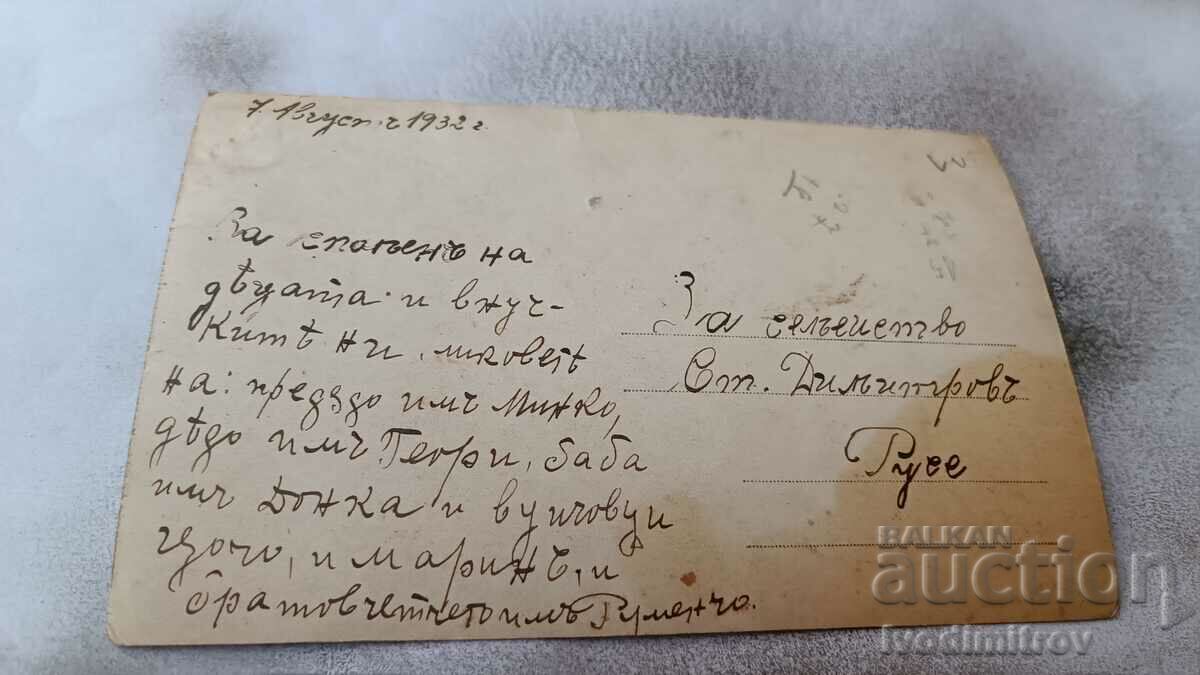 7. Август ъ 1932 г.
За спомѣнъ на
дѣцата и внуч-
китѣ ни
на: прѣдядо имъ Минко,
дѣдо имъ Георги, баба
имъ Донка и вуйчовци
Цочо, и Маринъ, и
братовчетчето имъ Руменчо.
За семѣйство
Ст. Димитровъ
Русе
BALKAN
auction
ivodimitrov